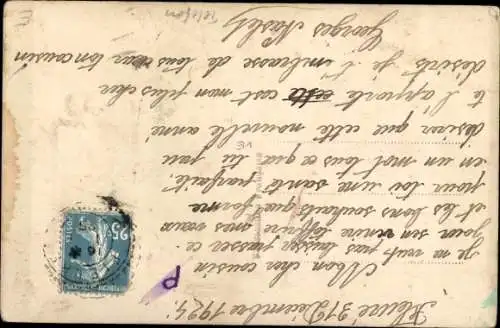 Fleuré 31 Decembre 1924
Mon cher cousin
Je ne veut pas laisser passer ce
jour sen venire t'offrire mes vœux
et les bons souhaits que forme
pour toi une santé parfaite.
en un mot tous ce que tu peu
désirer que cette nouvelle anné
te l'apporte cest mon plus cher
désirs je t'imbrasse de tous cœur ton cousin
Georges
P
25c
POSTES
Telefon